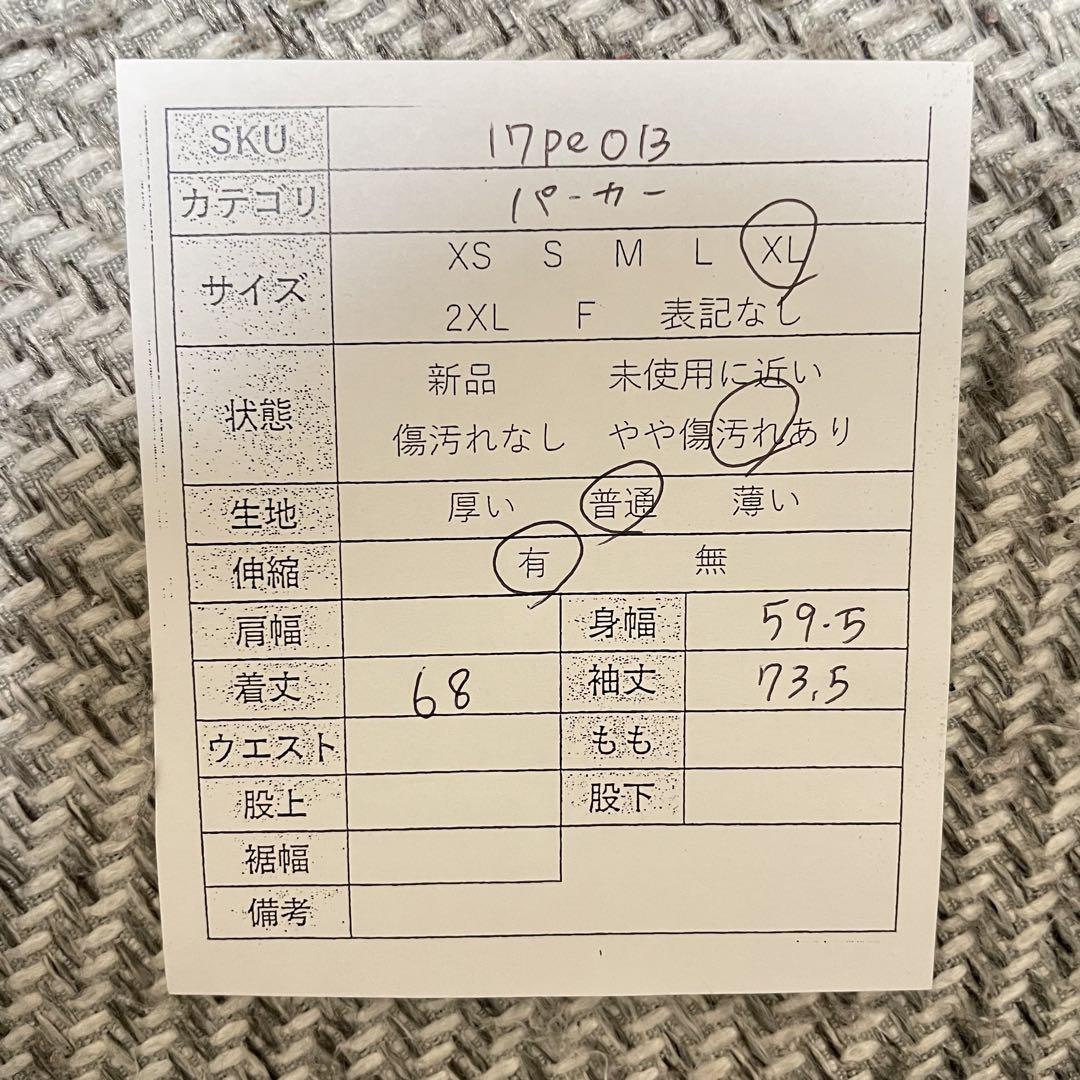 SKU 17pe013
カテゴリ パーカー
サイズ XS S M L XL
2XL F 表記なし
状態 新品 未使用に近い
傷汚れなし やや傷汚れあり
生地 厚い 普通 薄い
伸縮 有 無
肩幅 身幅 59.5
着丈 68 袖丈 73.5
ウエスト もも
股上 股下
裾幅
備考